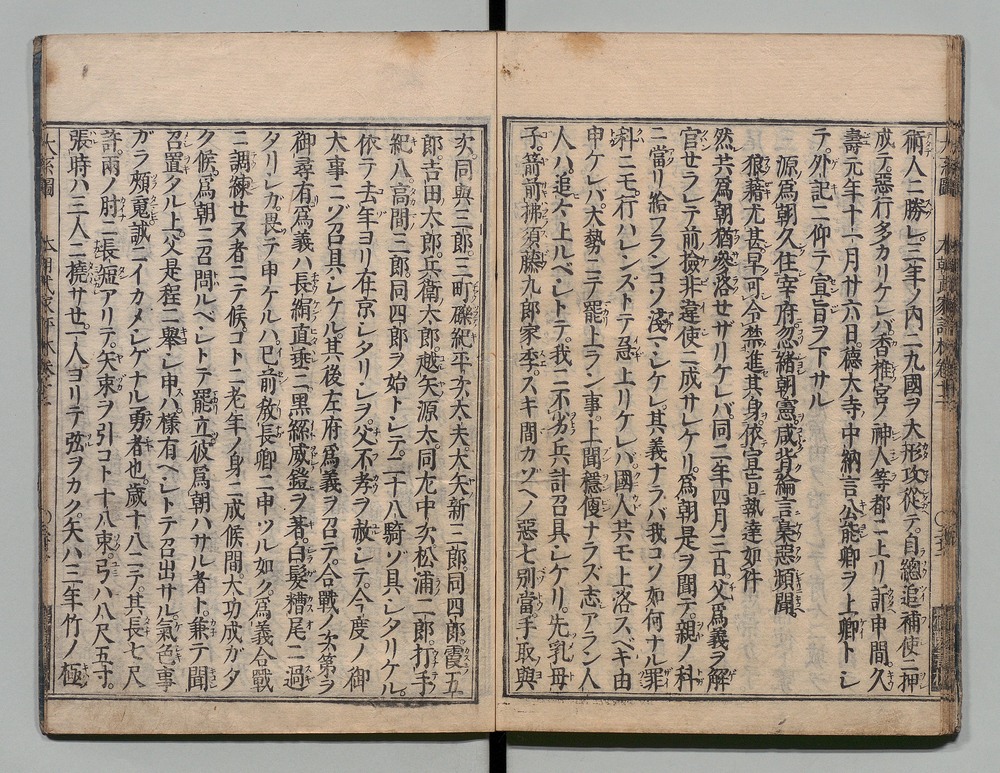 術人ニ勝レ三年ノ内ニ九國ヲ大形攻從テ自總追補使ニ押
成テ惡行多カリケレバ香椎宮ノ神人等都ニ上リ訴申間久
壽元年十一月廿六日德大寺中納言公能卿ヲ上卿トシ
テ外記ニ仰テ宣旨ヲ下サル
源爲朝久住宰府忽緒朝憲咸背綸言梟惡頻聞
狼藉尤甚早可令禁進其身依宣旨執達如件
然共爲朝猶參洛せザリケレバ同二年四月三日父爲義ヲ解
官せラレテ前撿非違使ニ成サレケリ爲朝是ヲ聞テ親ノ科
ニ當リ給フランコソ淺マシケレ其義ナラバ我コソ如何ナル罪
科ニモ行ハレンズトテ急上リケレバ國人共モ上洛スベキ由
申ケレバ大勢ニテ罷上ラン事上聞穩便ナラズ志アラン人
人ハ追々上ルベシトテ我ニ不劣兵計召具シケリ先乳母
子箭前拂須藤九郎家季スキ間カゾヘノ惡七別當手取與
次同與三郎三町礫紀平次大夫大矢新三郎同四郎霞五
郎吉田太郎兵衛太郎越矢源太同左中次松浦二郎打手
紀八高間三郎同四郎ヲ始トシテ二十八騎ゾ具シタリケル
依テ去年ヨリ在京シタリシヲ父不孝ヲ赦シテ今度ノ御
大事ニゾ召具シケル其後左府爲義ヲ召テ合戰ノ次第ヲ
御尋有爲義ハ長絹直垂ニ黒絲威鎧ヲ著白髮糟尾ニ過
タリシガ畏テ申ケルハ已前教長卿ニ申ツル如ク爲義合戰
ニ調練せヌ者ニテ候コトニ老年ノ身ニ成候間大功成ガタ
ク候爲朝ニ召問ルベシトテ罷立彼爲朝ハサル者ト兼テ聞
召置タル上父是程ニ擧シ申ハ樣有ベシトテ召出サル氣色事
ガラ頰魂誠ニイカメシゲナル勇者也歳十八ニテ其長七尺
許兩ノ肘ニ長短アリテ矢束ヲ引コト十八束弓ハ八尺五寸
張時ハ三人ニ撓サせ一人ヨリテ弦ヲカク矢ハ三年竹ノ極